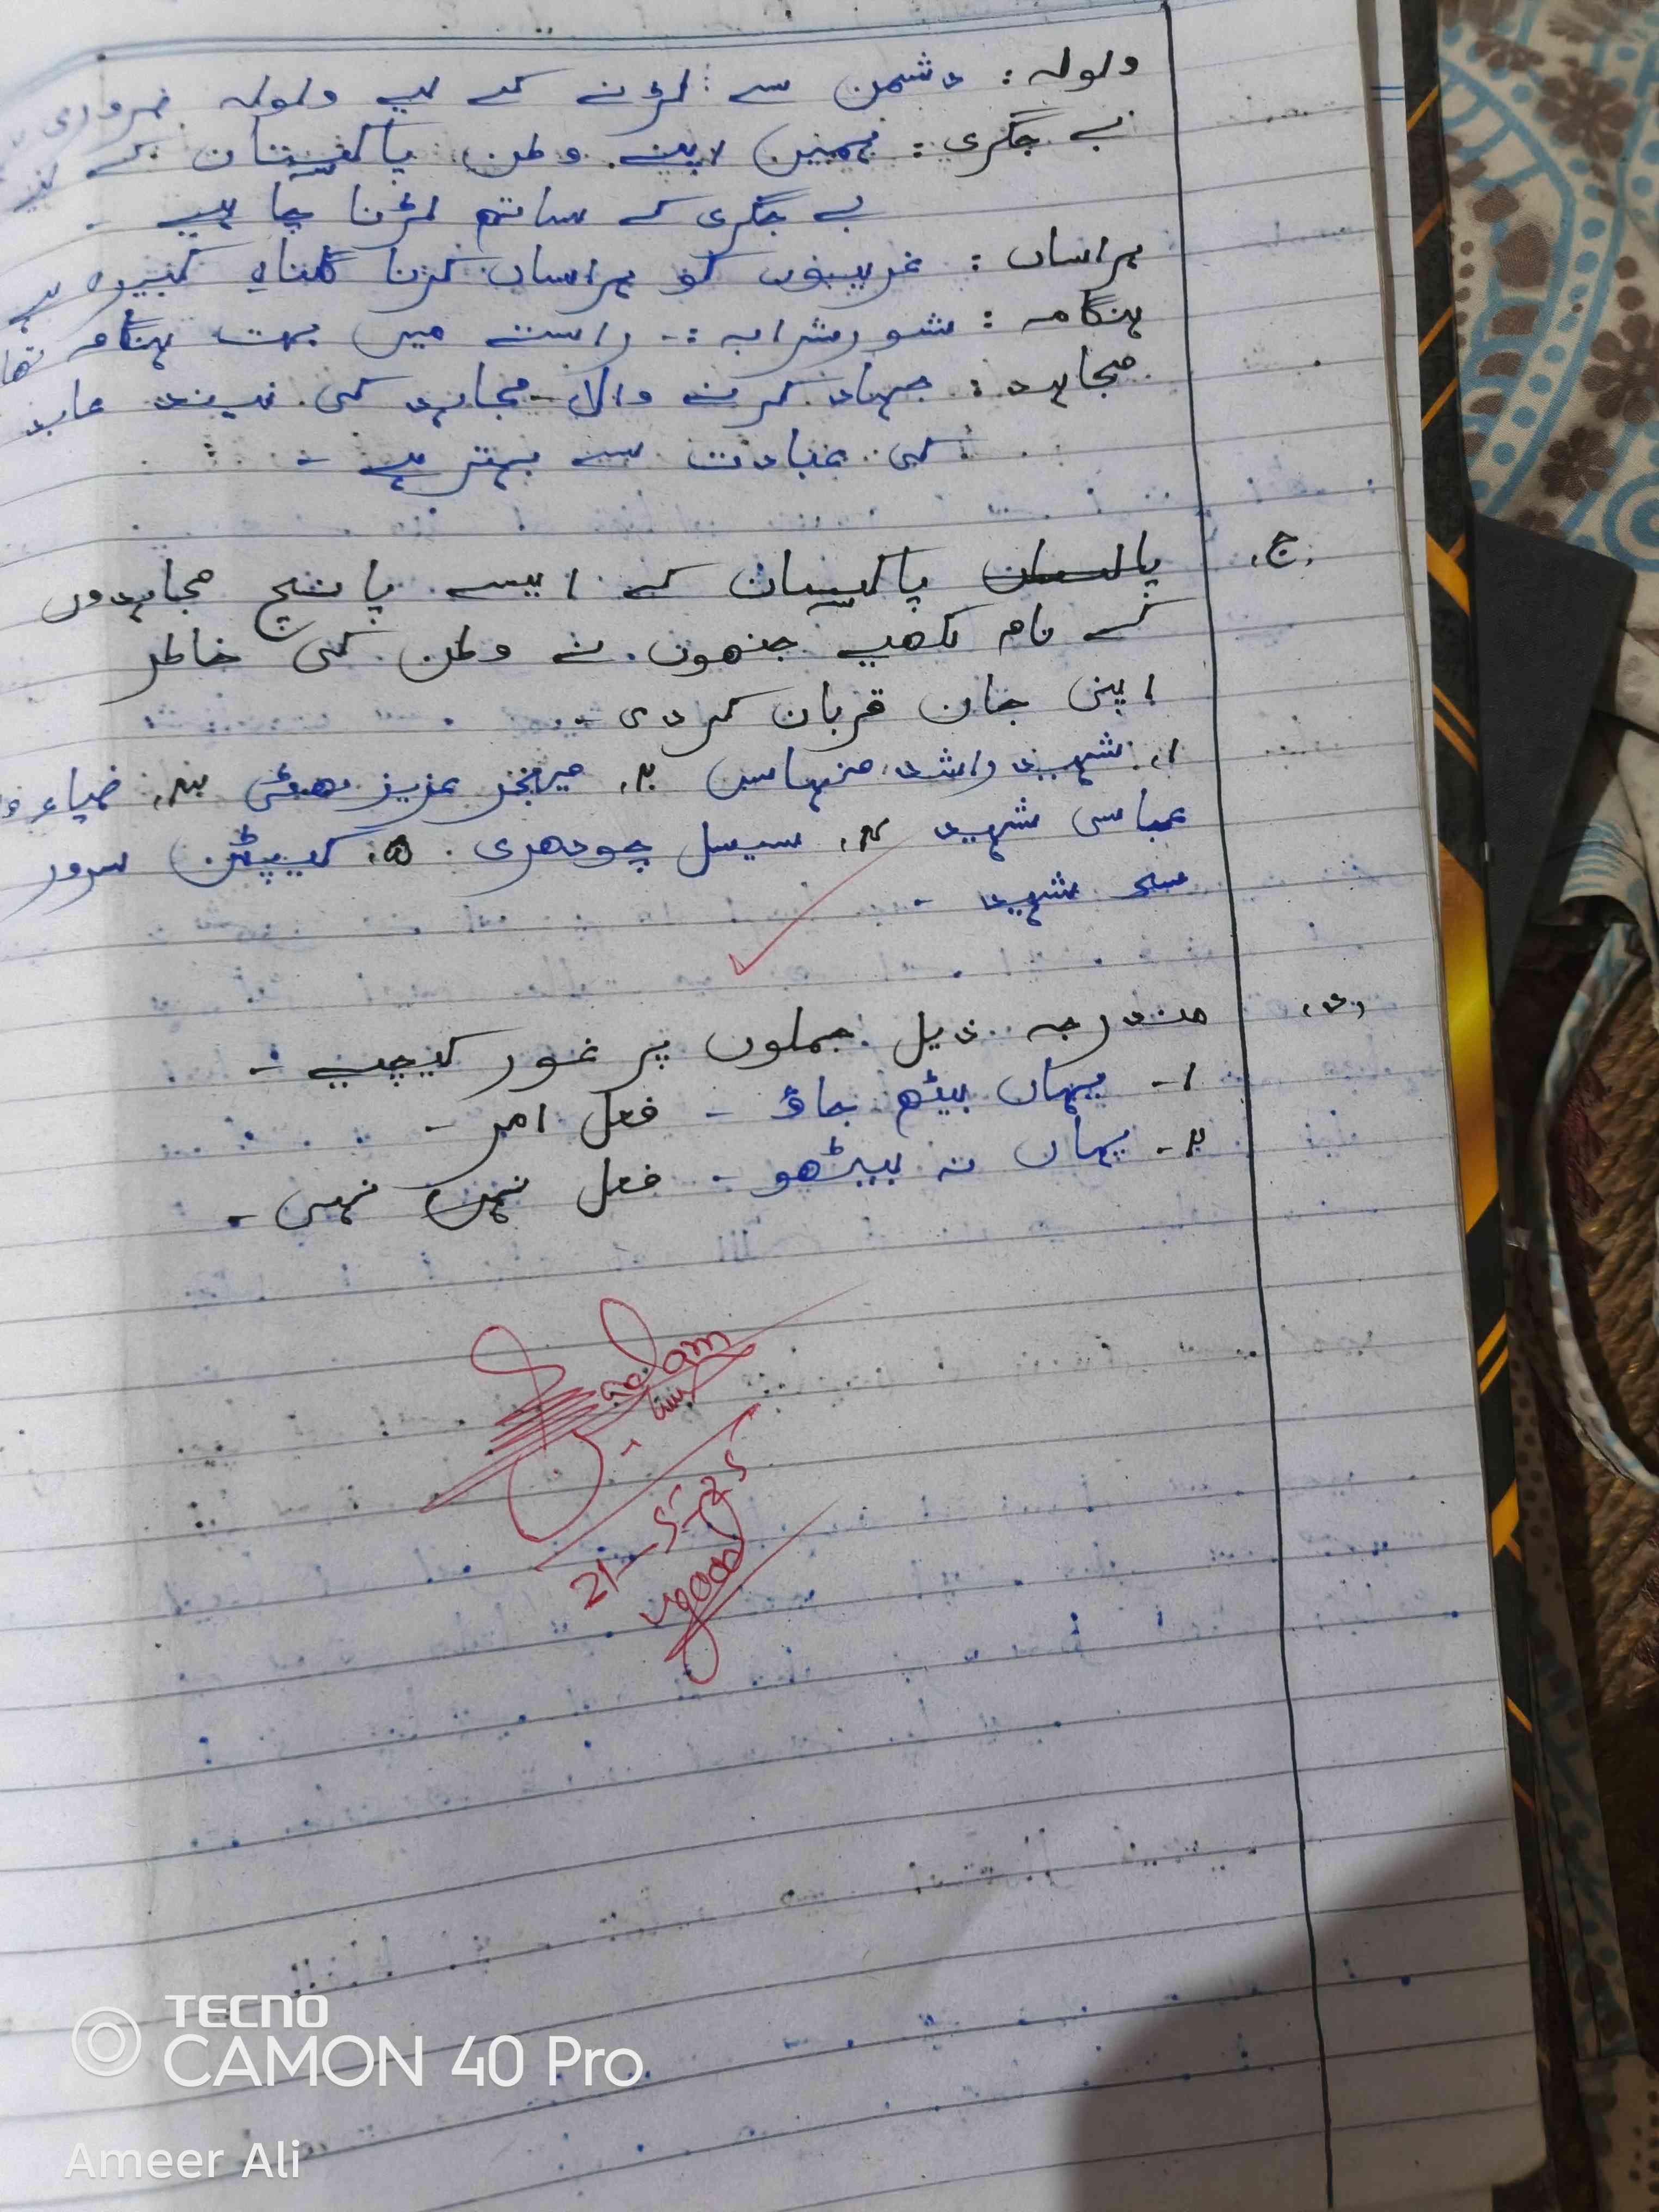 ولولہ : دشمن سے لڑنے کے لیے ولولہ ضروری
بے جگری : ہمیں اپنے وطن پاکستان کے لیے
بے جگری کے ساتھ لڑنا چاہیے -
ہراساں : غریبوں کو ہراساں کرنا گناہ کبیرہ ہے
ہنگامہ : شور شرابہ :- راستے میں بہت ہنگامہ تھا
مجاہد : جہاد کرنے والا - مجاہد کی نیند عابد
کی عبادت سے بہتر ہے -
ج. پاکستان کے ایسے پانچ مجاہدوں
کے نام لکھیے جنھوں نے وطن کی خاطر
اپنی جان قربان کردی -
۱. شہید راشد منہاس ۲. میجر عزیز بھٹی ۳. ضیاء
عباسی شہید ۴. سیسل چودھری ۵. کیپٹن سرور
شہید -
د. مندرجہ ذیل جملوں پر غور کیجیے -
۱- یہاں بیٹھ جاؤ - فعل امر -
۲- یہاں نہ بیٹھو - فعل نہی -
21-5-25
Vgood
TECNO
CAMON 40 Pro
Ameer Ali